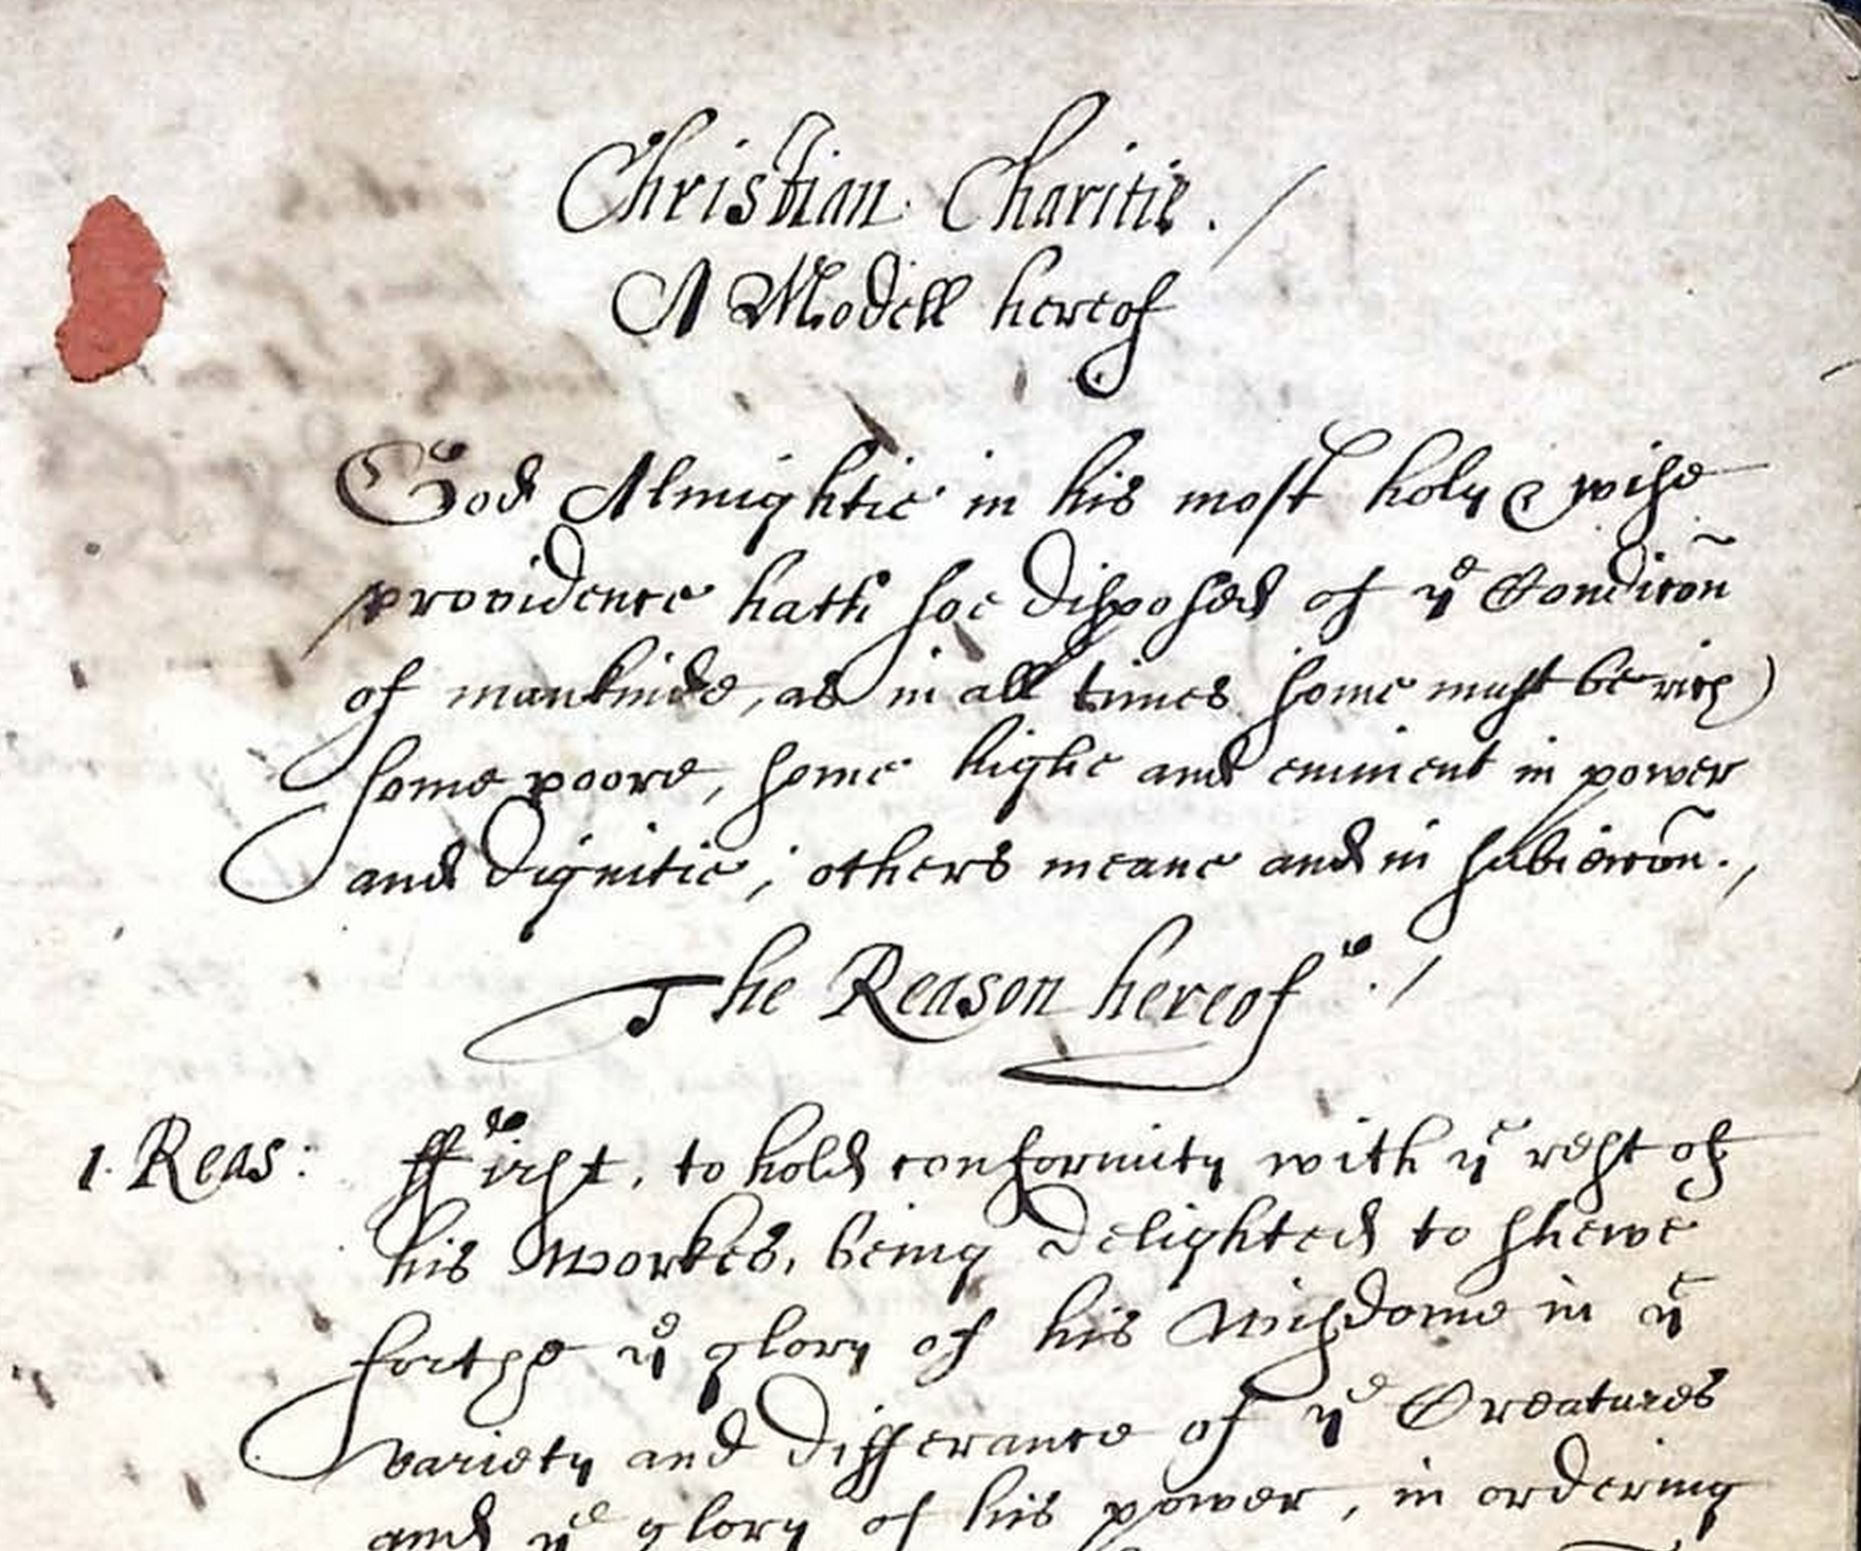 Christian Charitie.
A Modell hereof
God Almightie in his most holy & wise
providence hath soe disposed of yᵉ Condicõn
of mankinde, as in all times some must be rich
some poore, some highe and eminent in power
and dignitie; others meane and in subieccõn.
The Reason hereof.
1. Reas: ffirst, to hold conformity with yᵉ rest of
his workes, being delighted to shewe
forthe yᵉ glory of his wisdome in yᵉ
variety and differance of yᵉ Creatures
and yᵉ glory of his power, in ordering